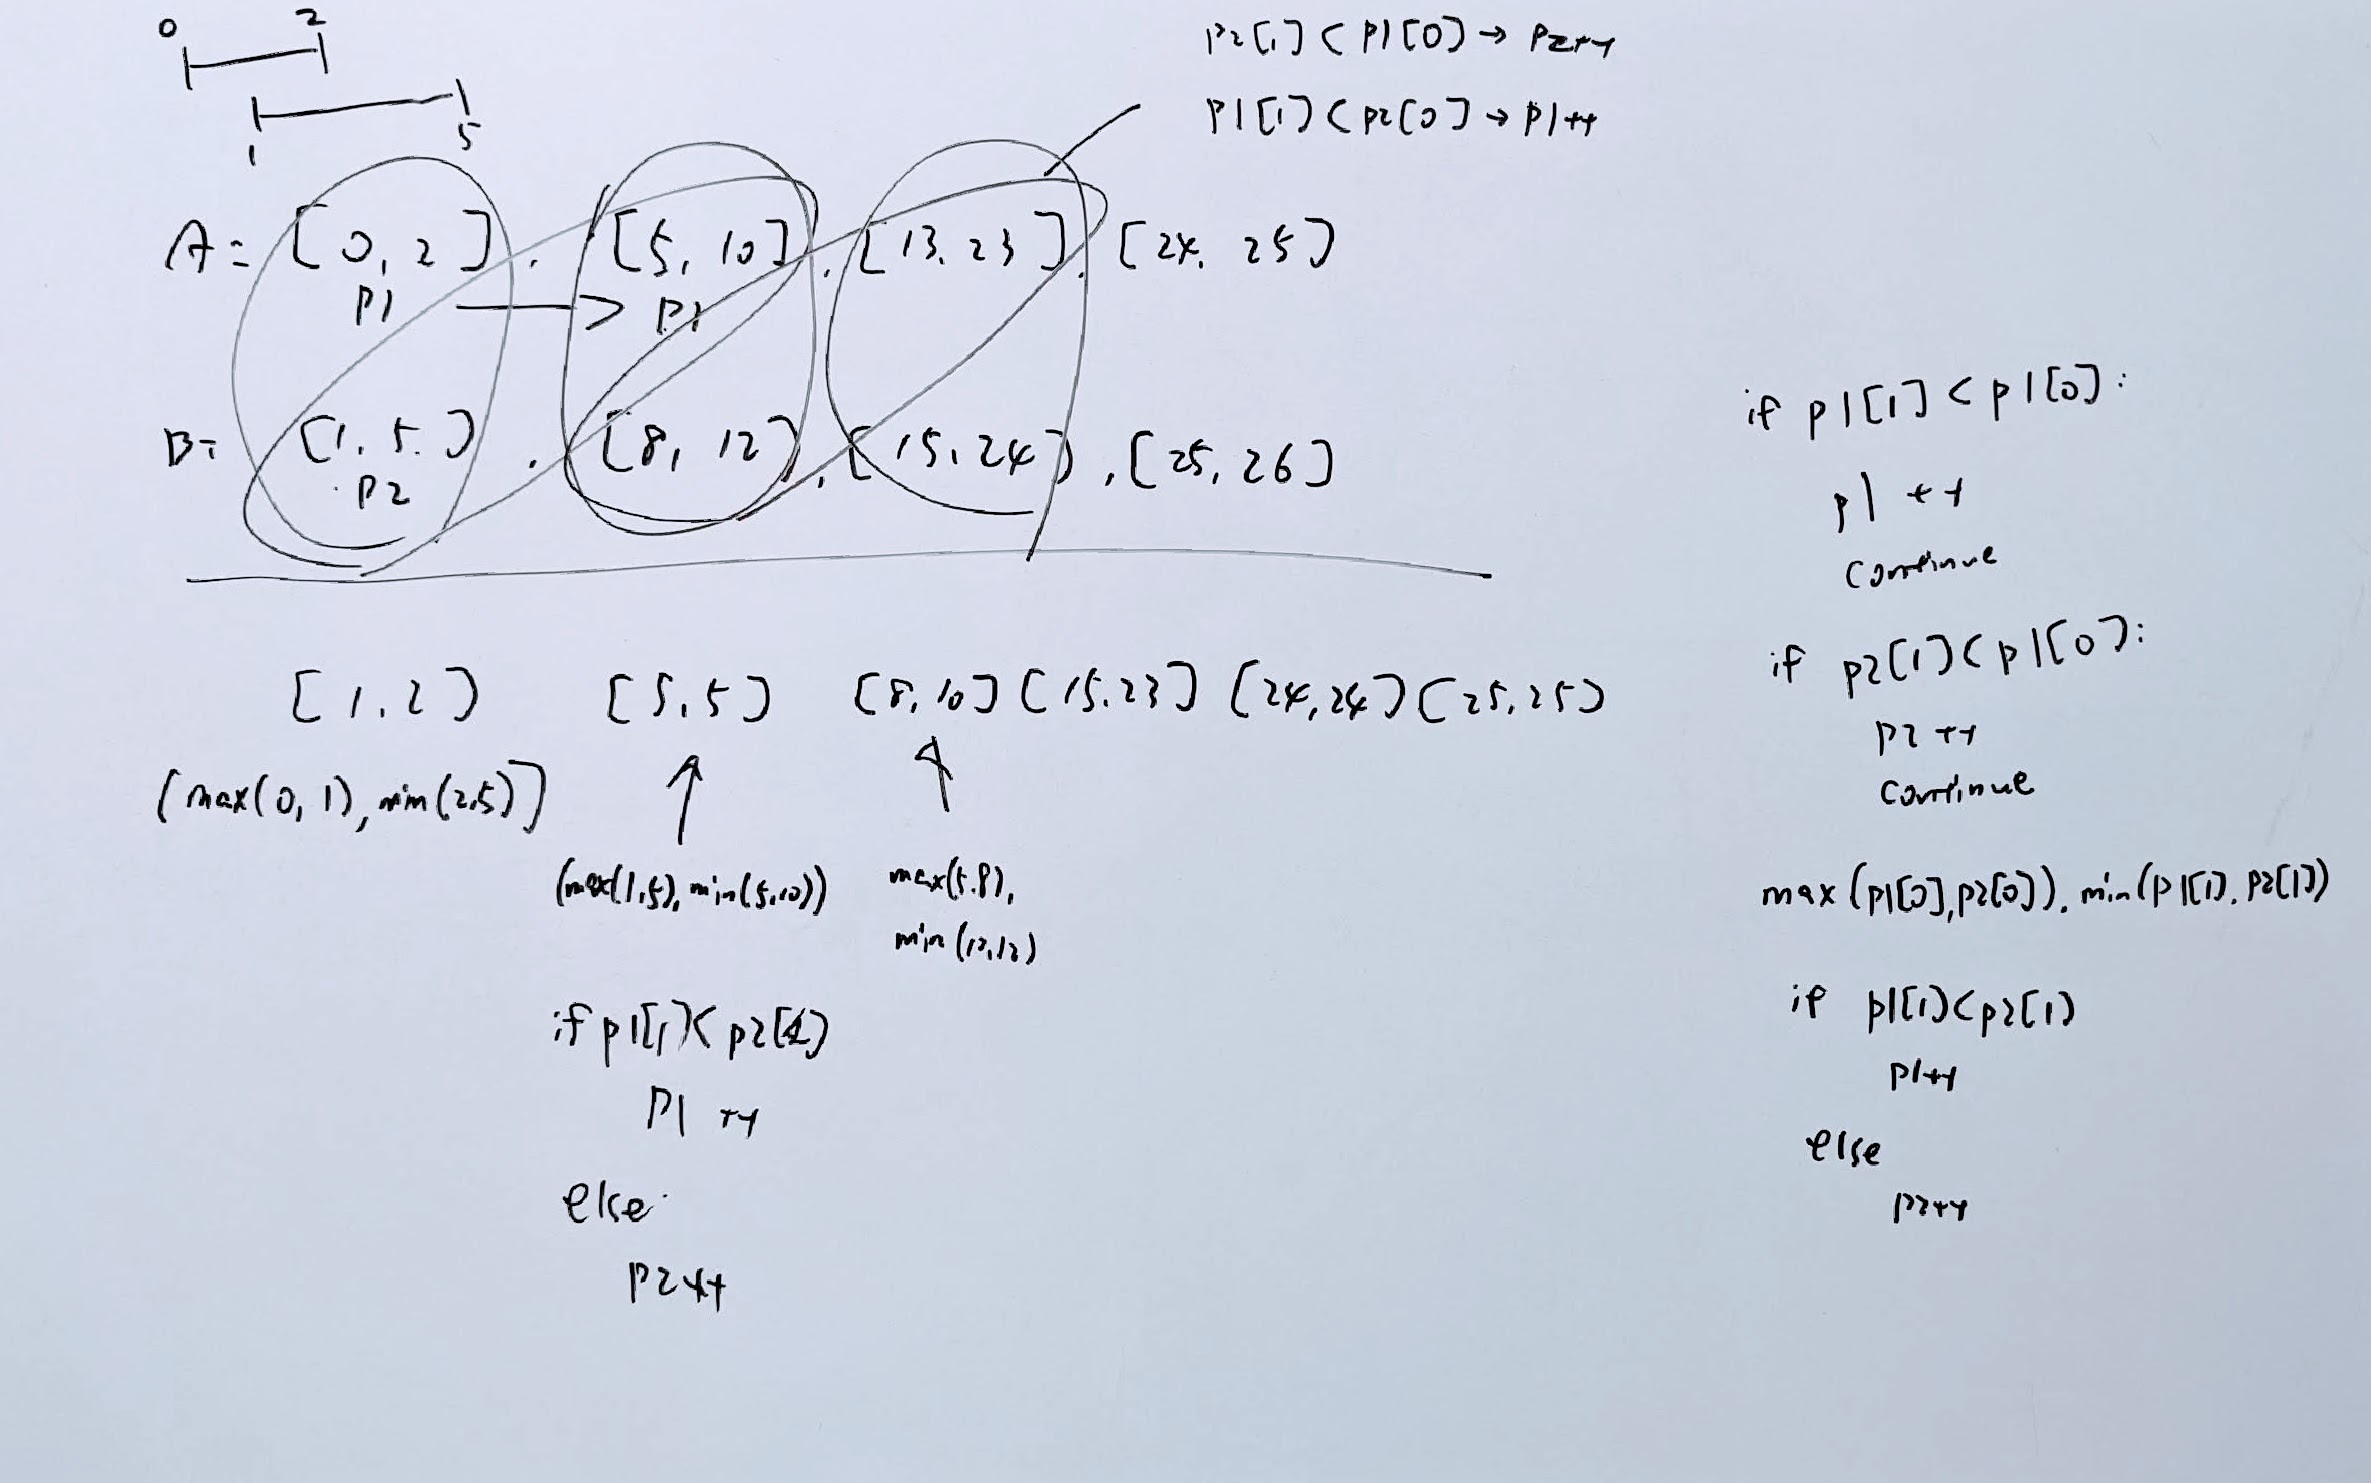 0 2
1 5
p2[1] < p1[0] → p2++
p1[1] < p2[0] → p1++
A= [0, 2], [5, 10], [13, 23], [24, 25]
p1 → p1
B= [1, 5], [8, 12], [15, 24], [25, 26]
p2
[1, 2] [5, 5] [8, 10] [15, 23] [24, 24] [25, 25]
[max(0, 1), min(2,5)]
(max(1,5), min(5,10))
max(5,8),
min(10,12)
if p1[1] < p2[1]
p1 ++
else
p2++
if p1[1] < p1[0]:
p1 ++
continue
if p2[1] < p1[0]:
p2 ++
continue
max (p1[0], p2[0]), min(p1[1], p2[1])
if p1[1] < p2[1]
p1++
else
p2++